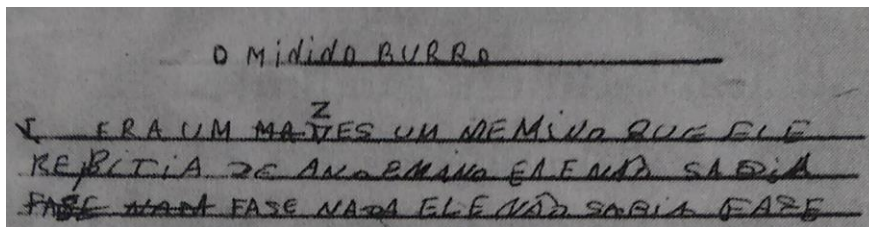 O MINIDO BURRO
ERA UM VZES UM MEMINO QUE ELE
REPITIA DE ANO EMANO ELE NÃO SABIA
FASE NADA ELE NÃO SABIA FASE